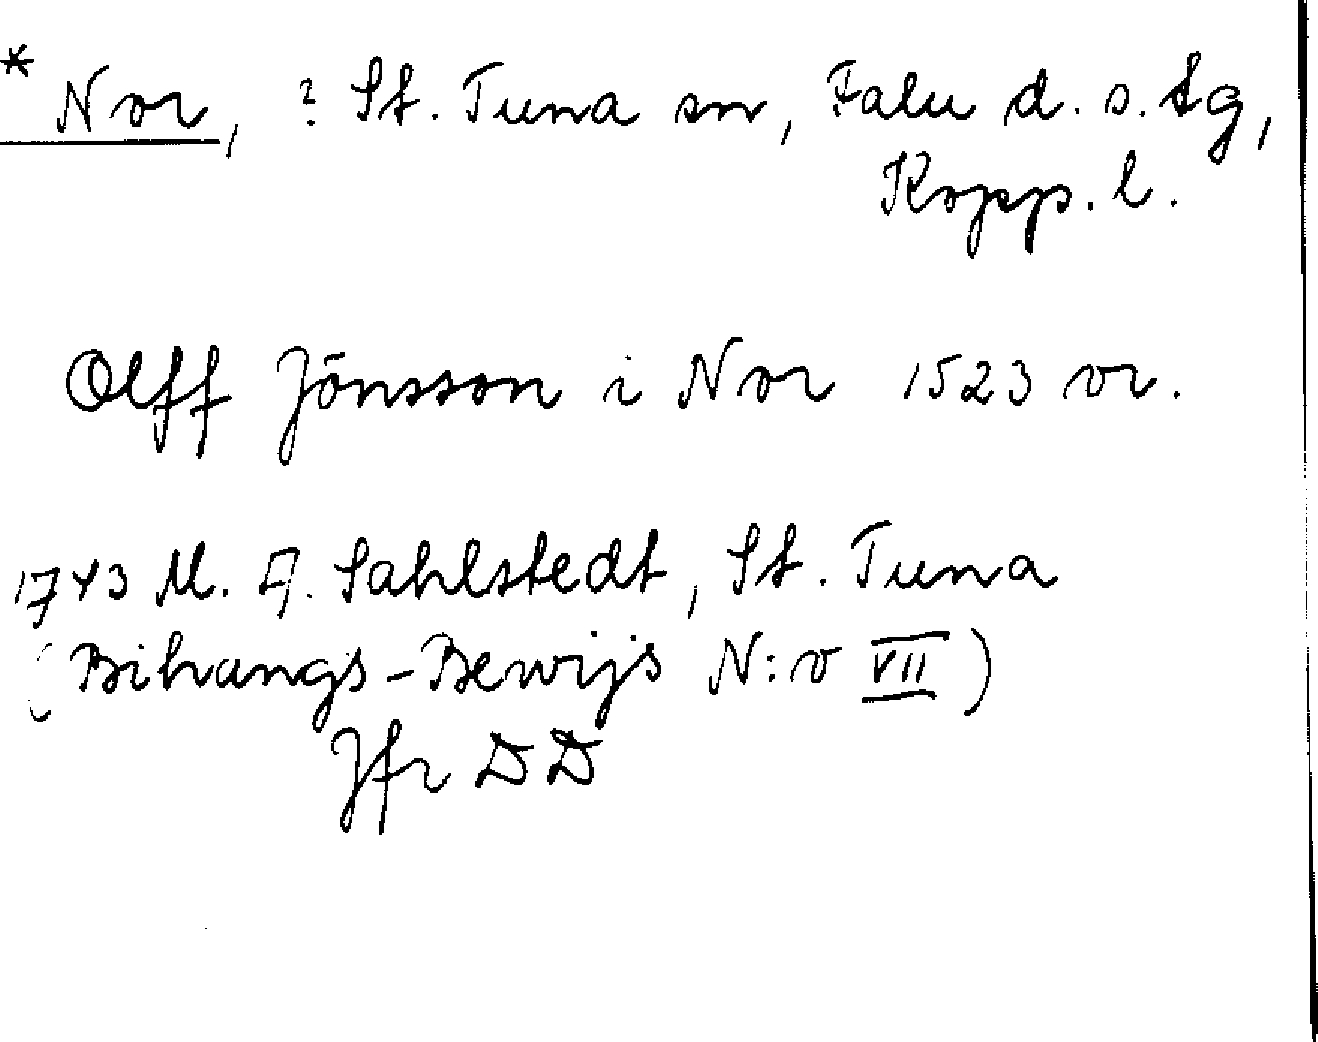 * Nor, ? St. Tuna sn, Falu d. s. tg,
Kopp. l.
Olff Jönsson i Nor 1523 or.
1743 M. A. Sahlstedt, St. Tuna
(Bihangs-Bewijs N:o VII)
Jfr DD